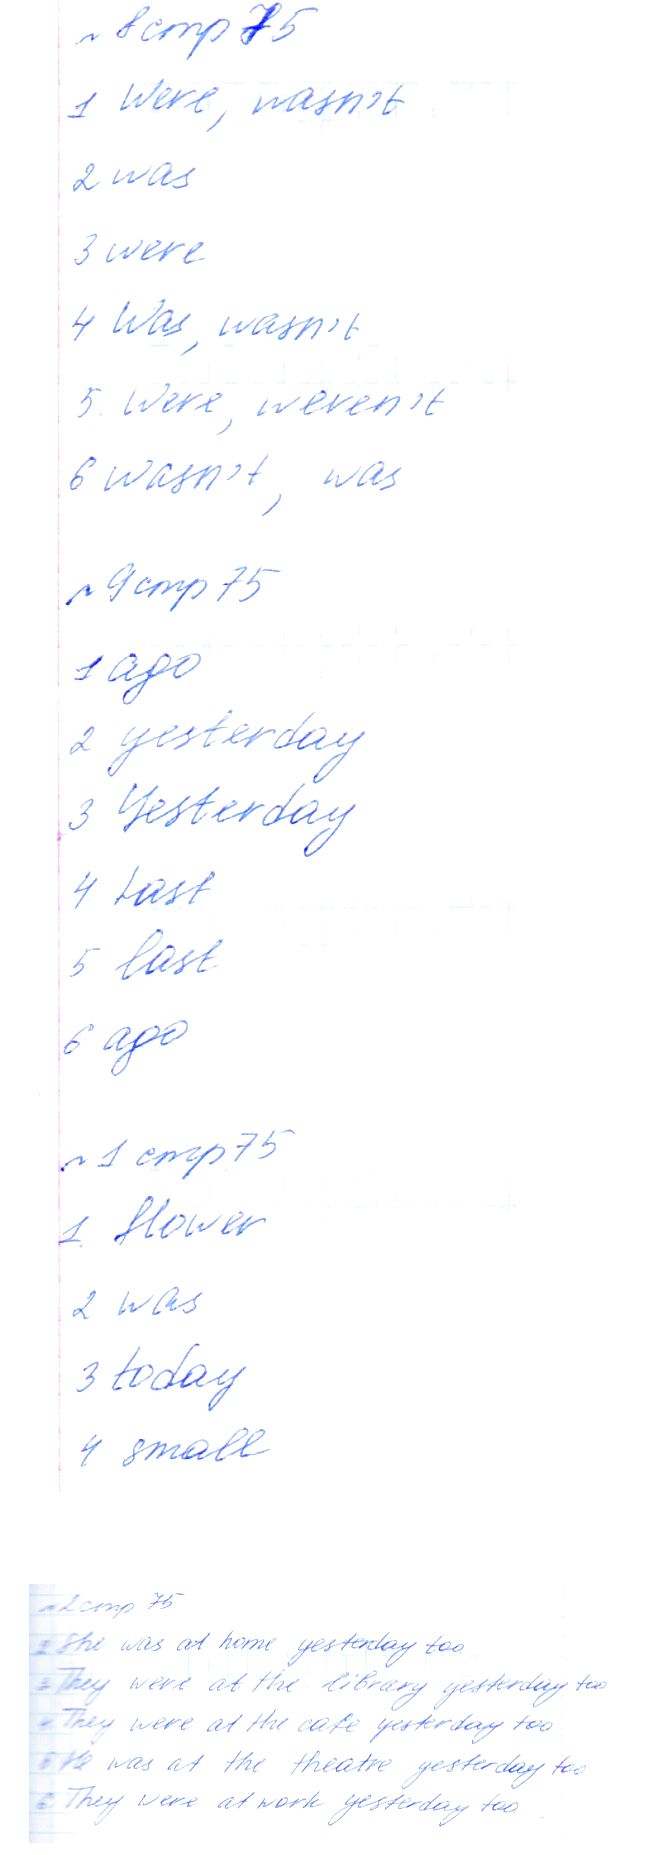 № 8 стр 75
1 Were, wasn't
2 was
3 were
4 Was, wasn't
5. Were, weren't
6 wasn't, was
№ 9 стр 75
1 ago
2 yesterday
3 Yesterday
4 Last
5 last
6 ago
№ 1 стр 75
1. flower
2 was
3 today
4 small
№ 2 стр 75
2 She was at home yesterday too
3 They were at the library yesterday too
4 They were at the cafe yesterday too
5 He was at the theatre yesterday too
6 They were at work yesterday too